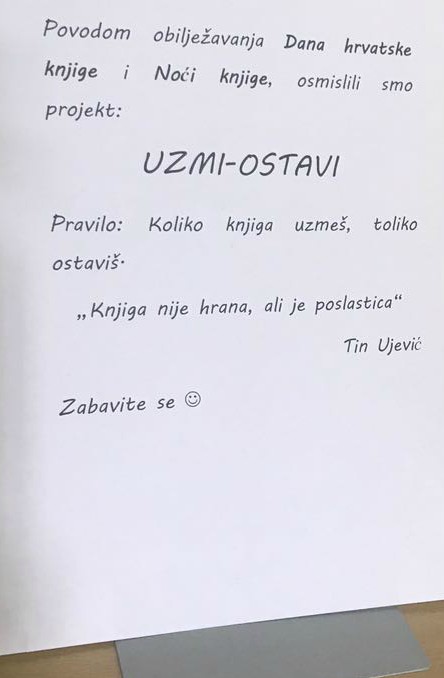 Povodom obilježavanja Dana hrvatske
knjige i Noći knjige, osmislili smo
projekt:
UZMI-OSTAVI
Pravilo: Koliko knjiga uzmeš, toliko
ostaviš.
„Knjiga nije hrana, ali je poslastica“
Tin Ujević
Zabavite se ☺